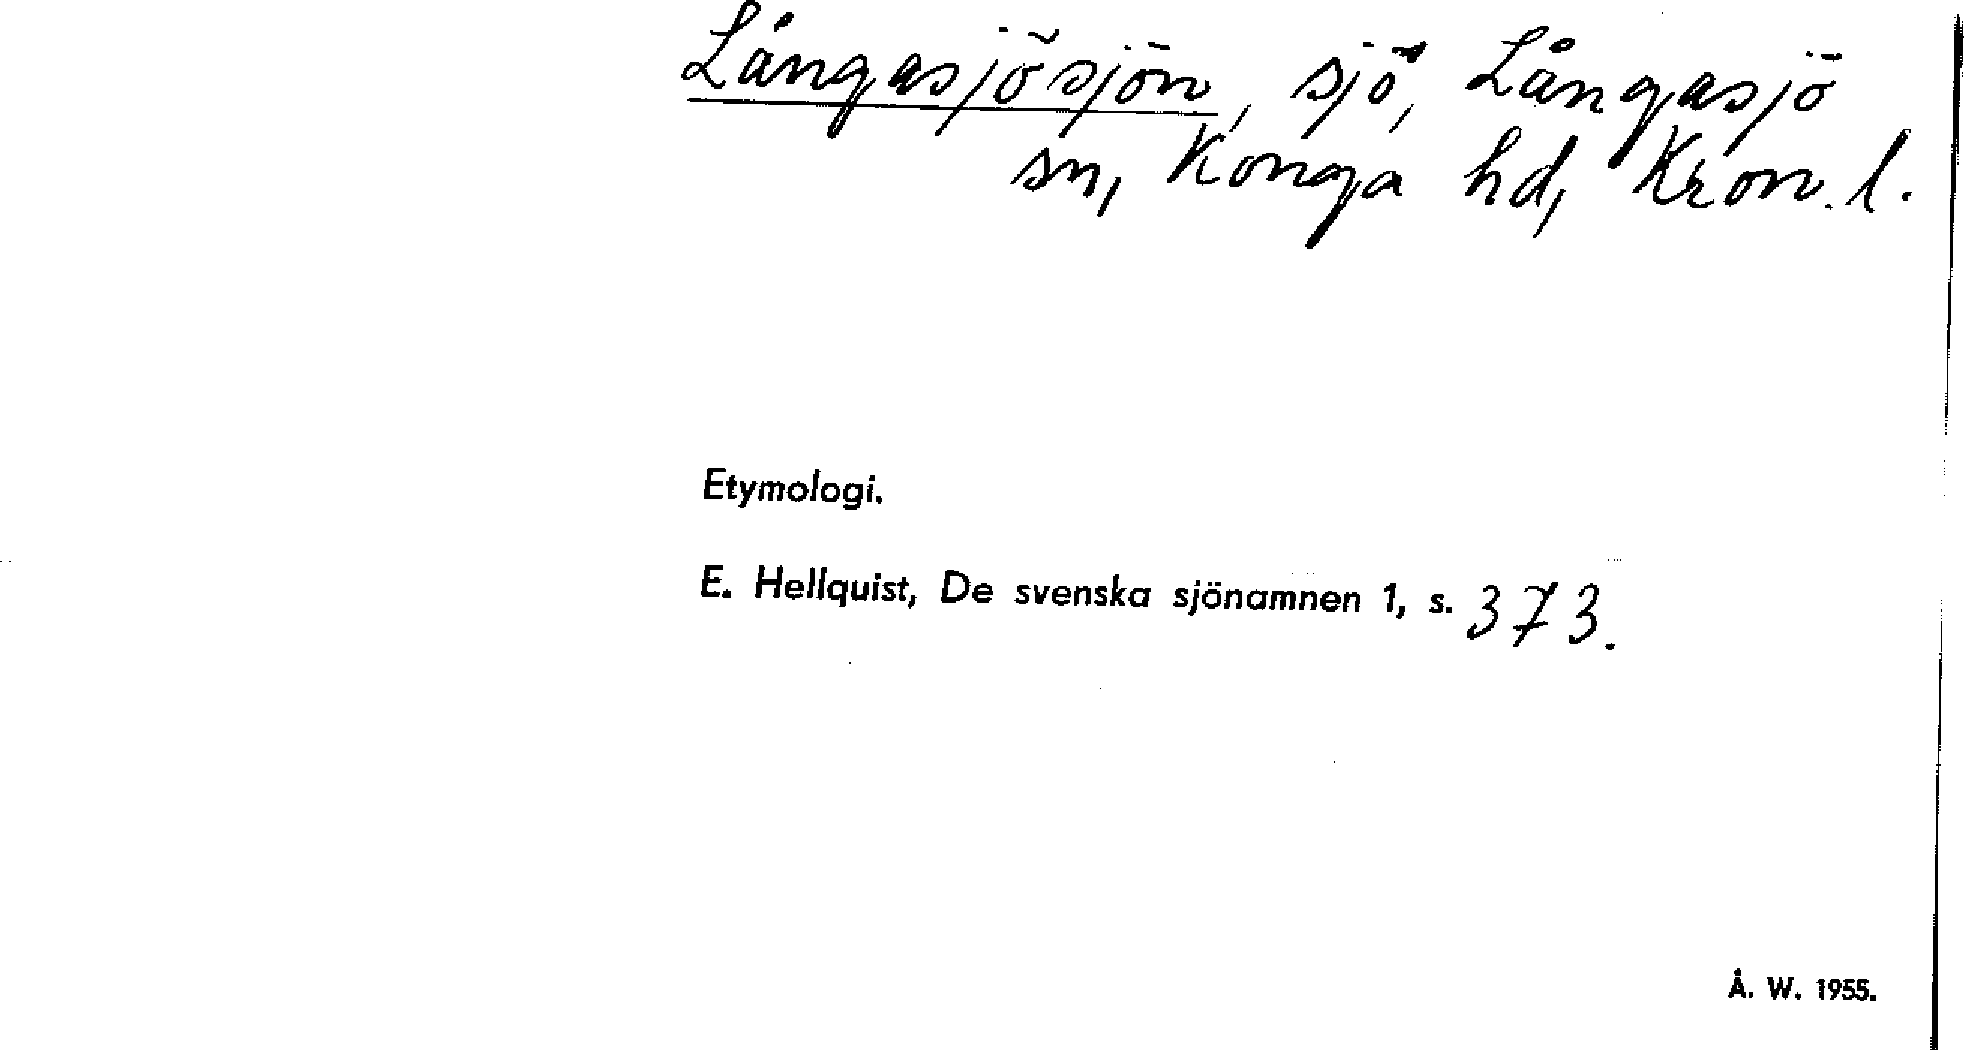 Långasjösjön, sjö, Långasjö
sn, Konga hd, Kron. l.
Etymologi.
E. Hellquist, De svenska sjönamnen 1, s. 373.
Å. W. 1955.